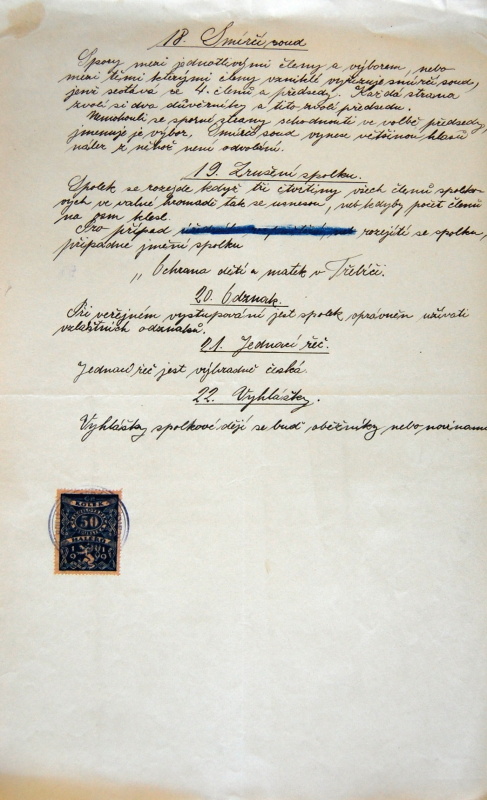 18. Smírčí soud
Spory mezi jednotlivými členy a výborem, nebo
mezi těmi kterými členy vzniklé vyřizuje smírčí soud,
jenž sestává ze 4. členů a předsedy. Každá strana
zvolí si dva důvěrníky a tito zvolí předsedu.
Nemohouli se sporné strany schodnouti ve volbě předsedy,
jmenuje je výbor. Smírčí soud vynese většinou hlasů
nález z něhož není odvolání.
19. Zrušení spolku.
Spolek se rozejde když tři čtvrtiny všech členů spolko-
vých ve valné hromadě tak se usnesou, neb kdyby počet členů
na osm klesl.
Pro případ rozejití se spolku,
připadne jmění spolku
„Ochrana dětí a matek v Třebíči.
20. Odznak.
Při veřejném vystupování jest spolek oprávněn užívati
vzláštních odznaků.
21. Jednací řeč.
Jednací řeč jest výhradně česká.
22. Vyhlášky.
Vyhlášky spolkové dějí se buď oběžníky nebo novinami
KOLEK
50
HALÉŘŮ